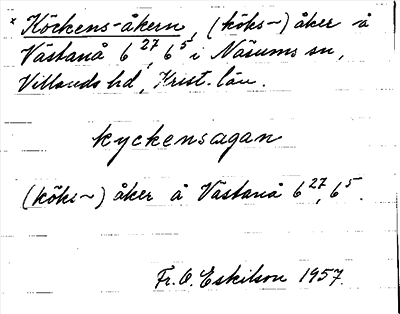 * Köckens-åkern, (köks~) åker å
Västanå 6²⁷, 6⁵ i Näsums sn,
Villands hd, Krist. län.
kyckensagan
(köks~) åker å Västanå 6²⁷, 6⁵.
Fr. O. Eskilson 1957.